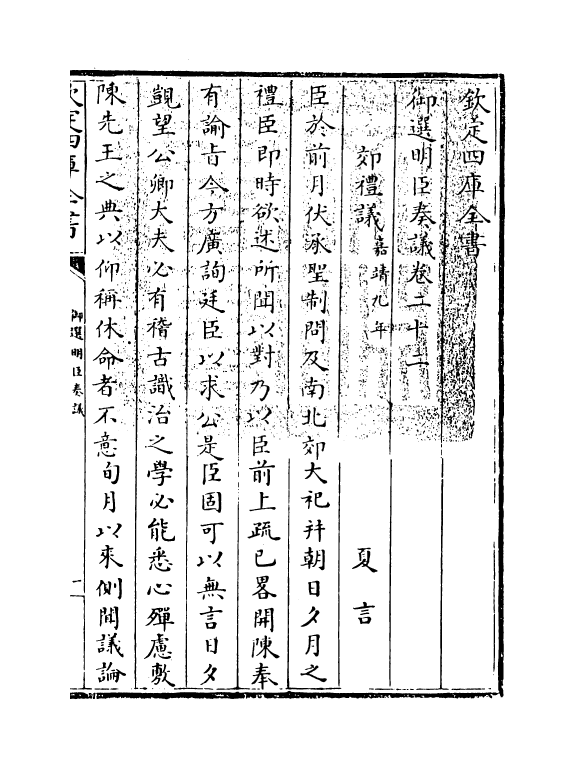 欽定四庫全書
御選明臣奏議卷二十二
郊禮議嘉靖九年 夏言
臣於前月伏承聖制問及南北郊大祀幷朝日夕月之
禮臣即時欲述所聞以對乃以臣前上疏已畧開陳奉
有諭旨今方廣詢廷臣以求公是臣固可以無言日夕
覬望公卿大夫必有稽古識治之學必能悉心殫慮敷
陳先王之典以仰稱休命者不意旬月以來側聞議論
欽定四庫全書
御選明臣奏議